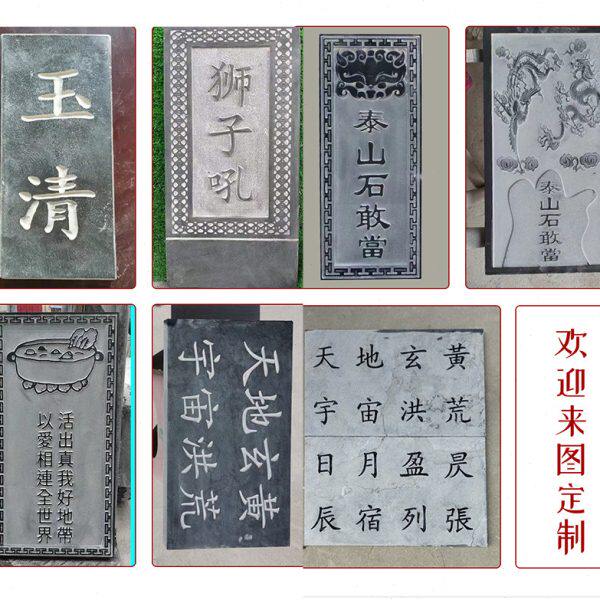 玉清
狮子吼
泰山石敢當
泰山石敢當
活出真我好地帶
以愛相連全世界
天地玄黃
宇宙洪荒
天地玄黃
宇宙洪荒
日月盈昃
辰宿列張
欢迎来图定制